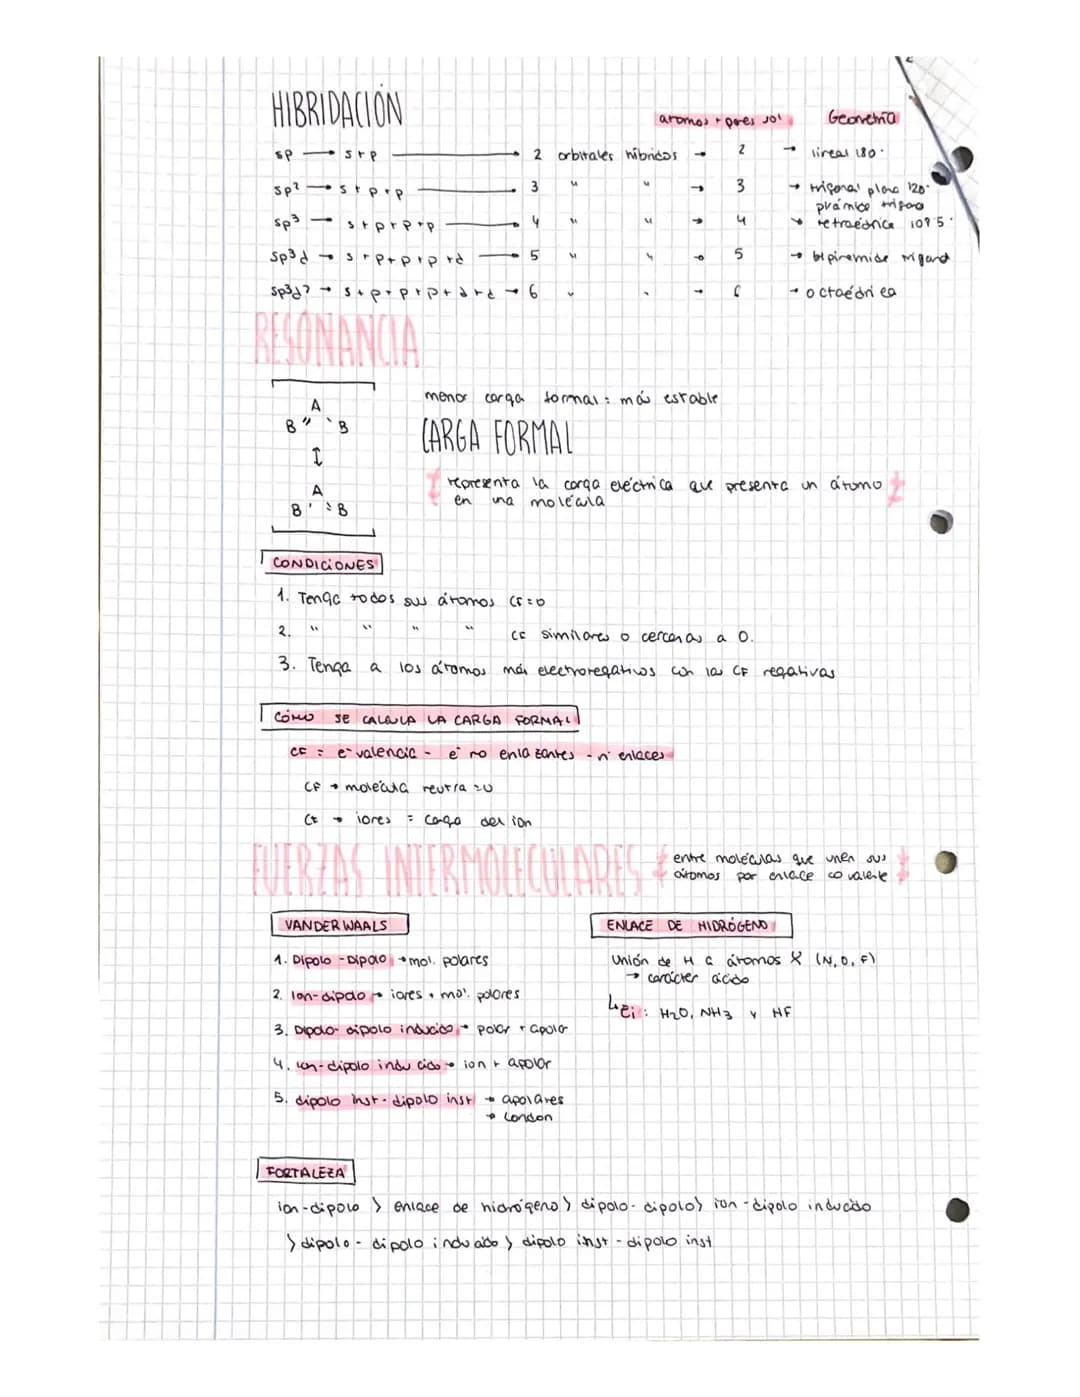 HIBRIDACIÓN
átomos + pares sol Geometría
sp → s+p → 2 orbitales híbridos → 2 → lineal 180°
sp² → s+p+p → 3 " " → 3 → trigonal plana 120°
pirámide trigonal
sp³ → s+p+p+p → 4 " " → 4 → tetraédrica 109'5°
sp³d → s+p+p+p+d → 5 " " → 5 → bipirámide trigonal
sp³d² → s+p+p+p+d+d → 6 " " → 6 → octaédrica
RESONANCIA
menor carga formal = más estable
A
B B
↕
A
B B
CARGA FORMAL
representa la carga eléctrica que presenta un átomo
en una molécula
CONDICIONES
1. Tenga todos sus átomos CF=0
2. " " " " CF similares o cercanas a 0.
3. Tenga a los átomos más electronegativos con las CF negativas
CÓMO SE CALCULA LA CARGA FORMAL
CF = e⁻ valencia - e⁻ no enlazantes - nº enlaces
CF → molécula neutra = 0
CF → iones = carga del ion
FUERZAS INTERMOLECULARES
entre moléculas que unen sus
átomos por enlace covalente
VANDERWAALS
1. Dipolo - Dipolo → mol. polares
2. Ion-dipolo → iones + mol. polares
3. Dipolo- dipolo inducido → polar + apolar
4. ion-dipolo inducido → ion + apolar
5. dipolo inst - dipolo inst → apolares
→ London
ENLACE DE HIDRÓGENO
Unión de H a átomos X (N, O, F)
→ carácter ácido
↳ Ej: H₂O, NH₃ y HF
FORTALEZA
ion-dipolo > enlace de hidrógeno > dipolo- dipolo > ion-dipolo inducido
> dipolo - dipolo inducido > dipolo inst - dipolo inst